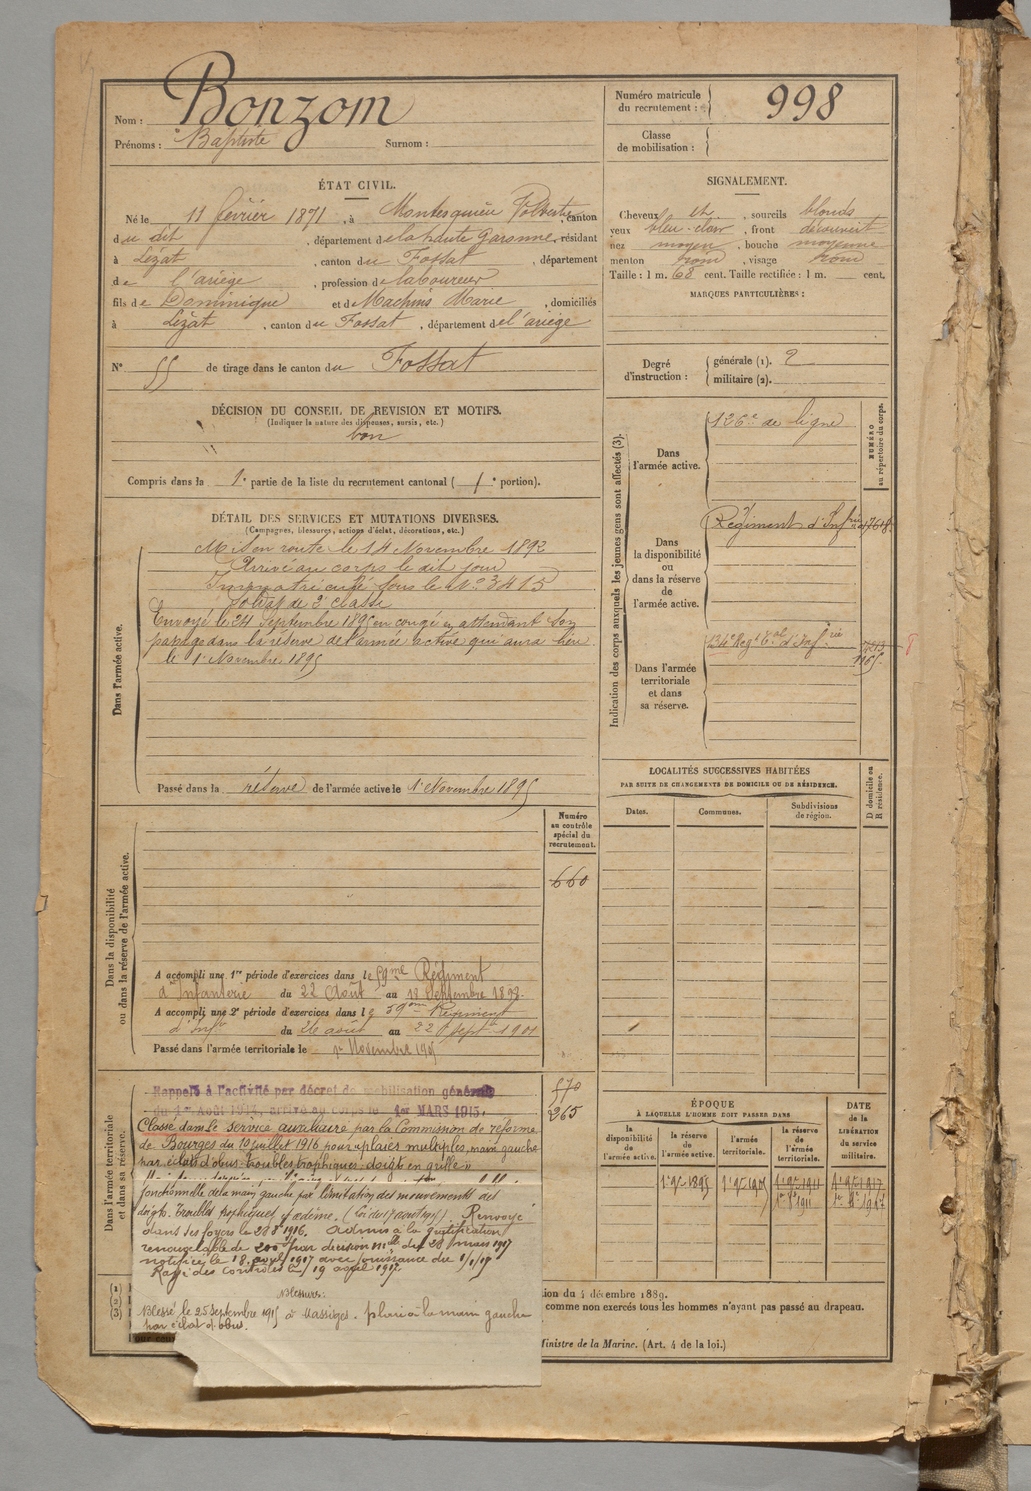 Nom : Bonzom
Prénoms : Baptiste Surnom :
Numéro matricule du recrutement : 998
Classe de mobilisation :
ÉTAT CIVIL.
Né le 11 février 1871, à Montesquieu Volvestre, canton
du dit, département de la haute Garonne, résidant
à Lézat, canton du Fossat, département
de l'ariège, profession de laboureur
fils de Dominique et de Machins Marie, domiciliés
à Lézat, canton du Fossat, département de l'ariège
N° 55 de tirage dans le canton du Fossat
SIGNALEMENT.
Cheveux et, sourcils blonds
yeux bleu-clair, front découvert
nez moyen, bouche moyenne
menton rond, visage rond
Taille : 1 m. 68 cent. Taille rectifiée : 1 m. cent.
MARQUES PARTICULIÈRES :
Degré d'instruction : générale (1). 2
militaire (2).
DÉCISION DU CONSEIL DE REVISION ET MOTIFS.
(Indiquer la nature des dispenses, sursis, etc.)
bon
Compris dans la 1e partie de la liste du recrutement cantonal ( 1e portion).
DÉTAIL DES SERVICES ET MUTATIONS DIVERSES.
(Campagnes, blessures, actions d'éclat, décorations, etc.)
Dans l'armée active.
Mis en route le 14 Novembre 1892
Arrivé au corps le dit jour
Immatriculé sous le N° 3415
Soldat de 2e classe
Envoyé le 24 Septembre 1895 en congé en attendant son
passage dans la réserve de l'armée active qui aura lieu
le 1er Novembre 1895
Passé dans la réserve de l'armée active le 1er Novembre 1895
Indication des corps auxquels les jeunes gens sont affectés (3).
NUMÉRO au répertoire du corps.
Dans l'armée active.
126e de ligne
Dans la disponibilité ou dans la réserve de l'armée active.
Régiment d'Infrie
Dans l'armée territoriale et dans sa réserve.
134e Regt Tal d'Infrie
1165
LOCALITÉS SUCCESSIVES HABITÉES
PAR SUITE DE CHANGEMENTS DE DOMICILE OU DE RÉSIDENCE.
Dates. Communes. Subdivisions de région. D domicile ou R résidence.
Dans la disponibilité ou dans la réserve de l'armée active.
Numéro au contrôle spécial du recrutement.
660
A accompli une 1re période d'exercices dans le 59me Régiment
d'Infanterie du 22 Août au 18 Septembre 1898.
A accompli une 2e période d'exercices dans le 59me Régiment
d'Infie du 26 août au 22 septbre 1901
Passé dans l'armée territoriale le 1er Novembre 1905
Dans l'armée territoriale et dans sa réserve.
570
265
Rappelé à l'activité par décret de mobilisation générale
du 1er Août 1914, arrivé au corps le 1er MARS 1915.
Classé dans le service auxiliaire par la Commission de réforme
de Bourges du 10 juillet 1916 pour plaies multiples, main gauche
par éclats d'obus. Troubles trophiques. doigt en griffe"
fonctionnelle de la main gauche par limitation des mouvements des
doigts. Troubles trophiques, œdème. Renvoyé
dans ses foyers le 28 8bre 1916. Admis à la gratification
renouvelable de 200f par décision mlle du 28 mars 1917
notifiée le 18 avril 1917 avec jouissance du 1/1/17
Rayé des contrôles le 19 avril 1917.
Blessures:
Blessé le 25 septembre 1915 à Massiges. plaie à la main gauche
par éclat d'obus.
ÉPOQUE
À LAQUELLE L'HOMME DOIT PASSER DANS
la disponibilité de l'armée active. la réserve de l'armée active. l'armée territoriale. la réserve de l'armée territoriale.
DATE de la LIBÉRATION du service militaire.
1er 9bre 1895 1er 9bre 1905 1er 9bre 1911 1er 9bre 1917
1er 8bre 1911 1er 8bre 1917
(1)
(2)
(3)
tion du 4 décembre 1889.
comme non exercés tous les hommes n'ayant pas passé au drapeau.
Ministre de la Marine. (Art. 4 de la loi.)